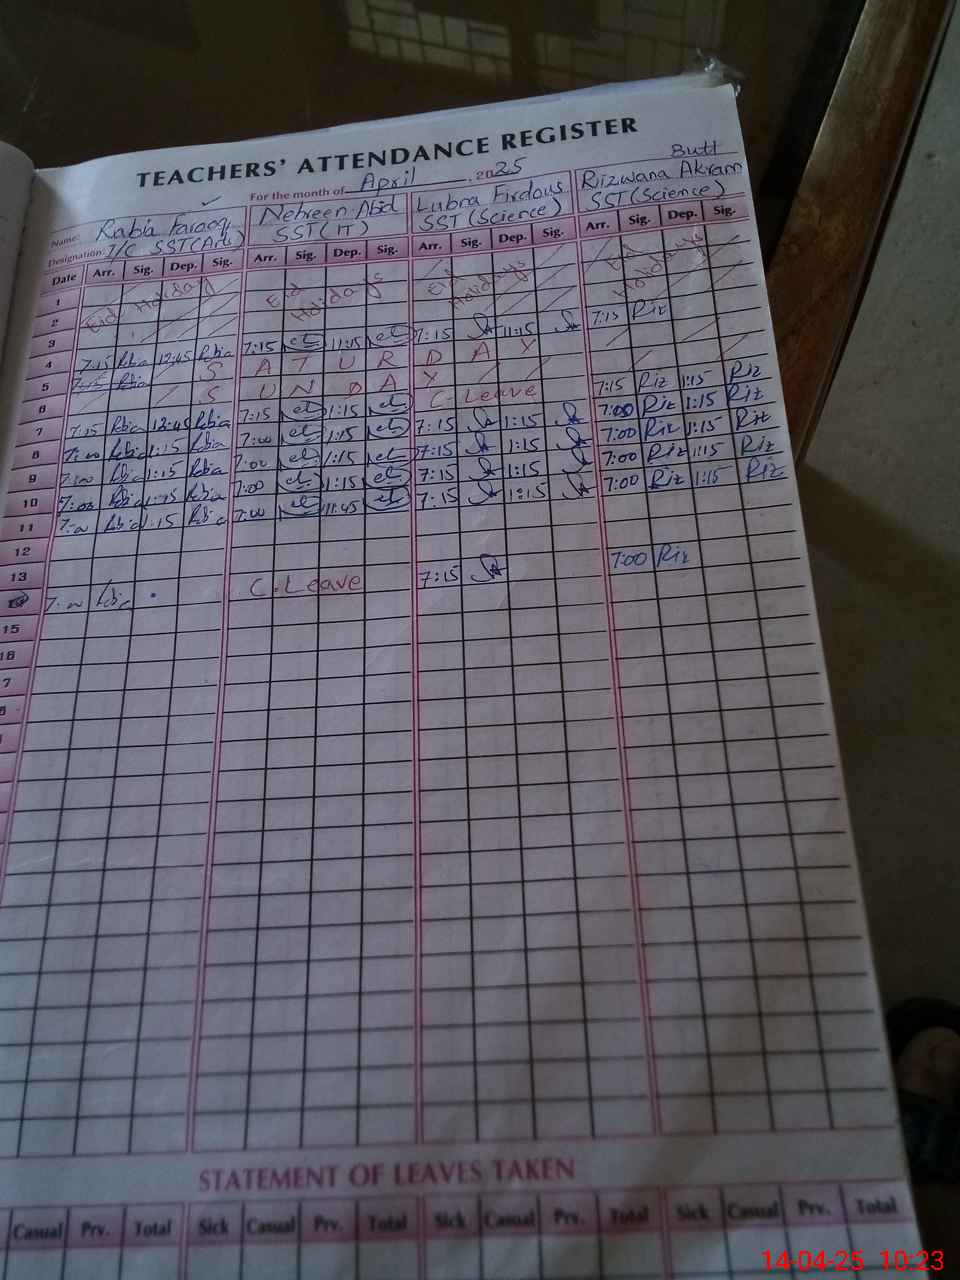 TEACHERS' ATTENDANCE REGISTER
For the month of April 2025
Name: Rabia Farooq Nehreen Abid Lubna Firdous Rizwana Akram Butt
Designation: I/C SST(Arts) SST(IT) SST(Science) SST(Science)
Date Arr. Sig. Dep. Sig. Arr. Sig. Dep. Sig. Arr. Sig. Dep. Sig. Arr. Sig. Dep. Sig.
1 Eid Holidays Eid Holidays Eid Holidays Eid Holidays
2
3
4 7:15 Rabia 12:45 Rabia 7:15 11:15 7:15 11:15 7:15 Riz
5 7:15 Rabia S A T U R D A Y
6 S U N D A Y
7 7:15 Rabia 12:45 Rabia 7:15 1:15 C. Leave 7:15 Riz 1:15 Riz
8 7:00 Rabia 1:15 Rabia 7:00 1:15 7:15 1:15 7:00 Riz 1:15 Riz
9 7:00 Rabia 1:15 Rabia 7:00 1:15 7:15 1:15 7:00 Riz 1:15 Riz
10 7:00 Rabia 1:15 Rabia 7:00 1:15 7:15 1:15 7:00 Riz 1:15 Riz
11 7:00 Rabia 1:15 Rabia 7:00 11:45 7:15 1:15 7:00 Riz 1:15 Riz
12
13
7:00 Rabia C. Leave 7:15 7:00 Riz
15
16
7
STATEMENT OF LEAVES TAKEN
Casual Prv. Total Sick Casual Prv. Total Sick Casual Prv. Total Sick Casual Prv. Total
14-04-25 10:23